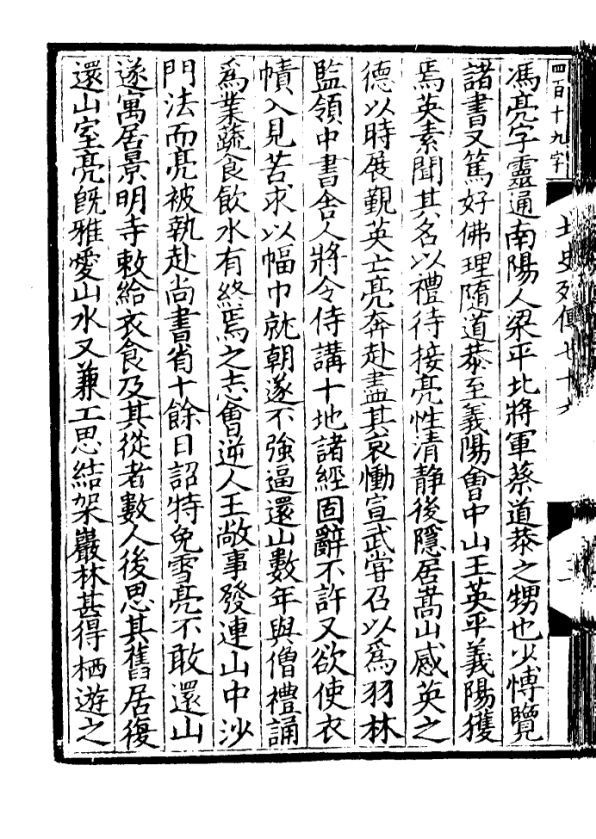 四百十九字
北史列傳七十六
馮亮字靈通南陽人梁平北將軍蔡道恭之甥也少博覽
諸書又篤好佛理隨道恭至義陽會中山王英平義陽獲
焉英素聞其名以禮待接亮性清靜後隱居嵩山感英之
德以時展覲英亡亮奔赴盡其哀慟宣武嘗召以爲羽林
監領中書舍人將令侍講十地諸經固辭不許又欲使衣
幘入見苦求以幅巾就朝遂不強逼還山數年與僧禮誦
爲業蔬食飲水有終焉之志會逆人王敞事發連山中沙
門法而亮被執赴尚書省十餘日詔特免雪亮不敢還山
遂寓居景明寺敕給衣食及其從者數人後思其舊居復
還山室亮旣雅愛山水又兼工思結架巖林甚得栖遊之